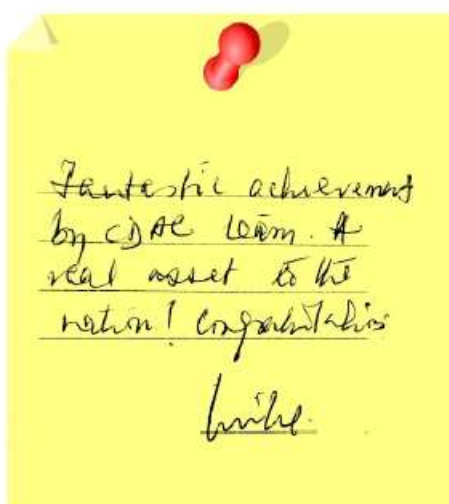 Fantastic achievement
by CDAC team. A
real asset to the
nation! Congratulations